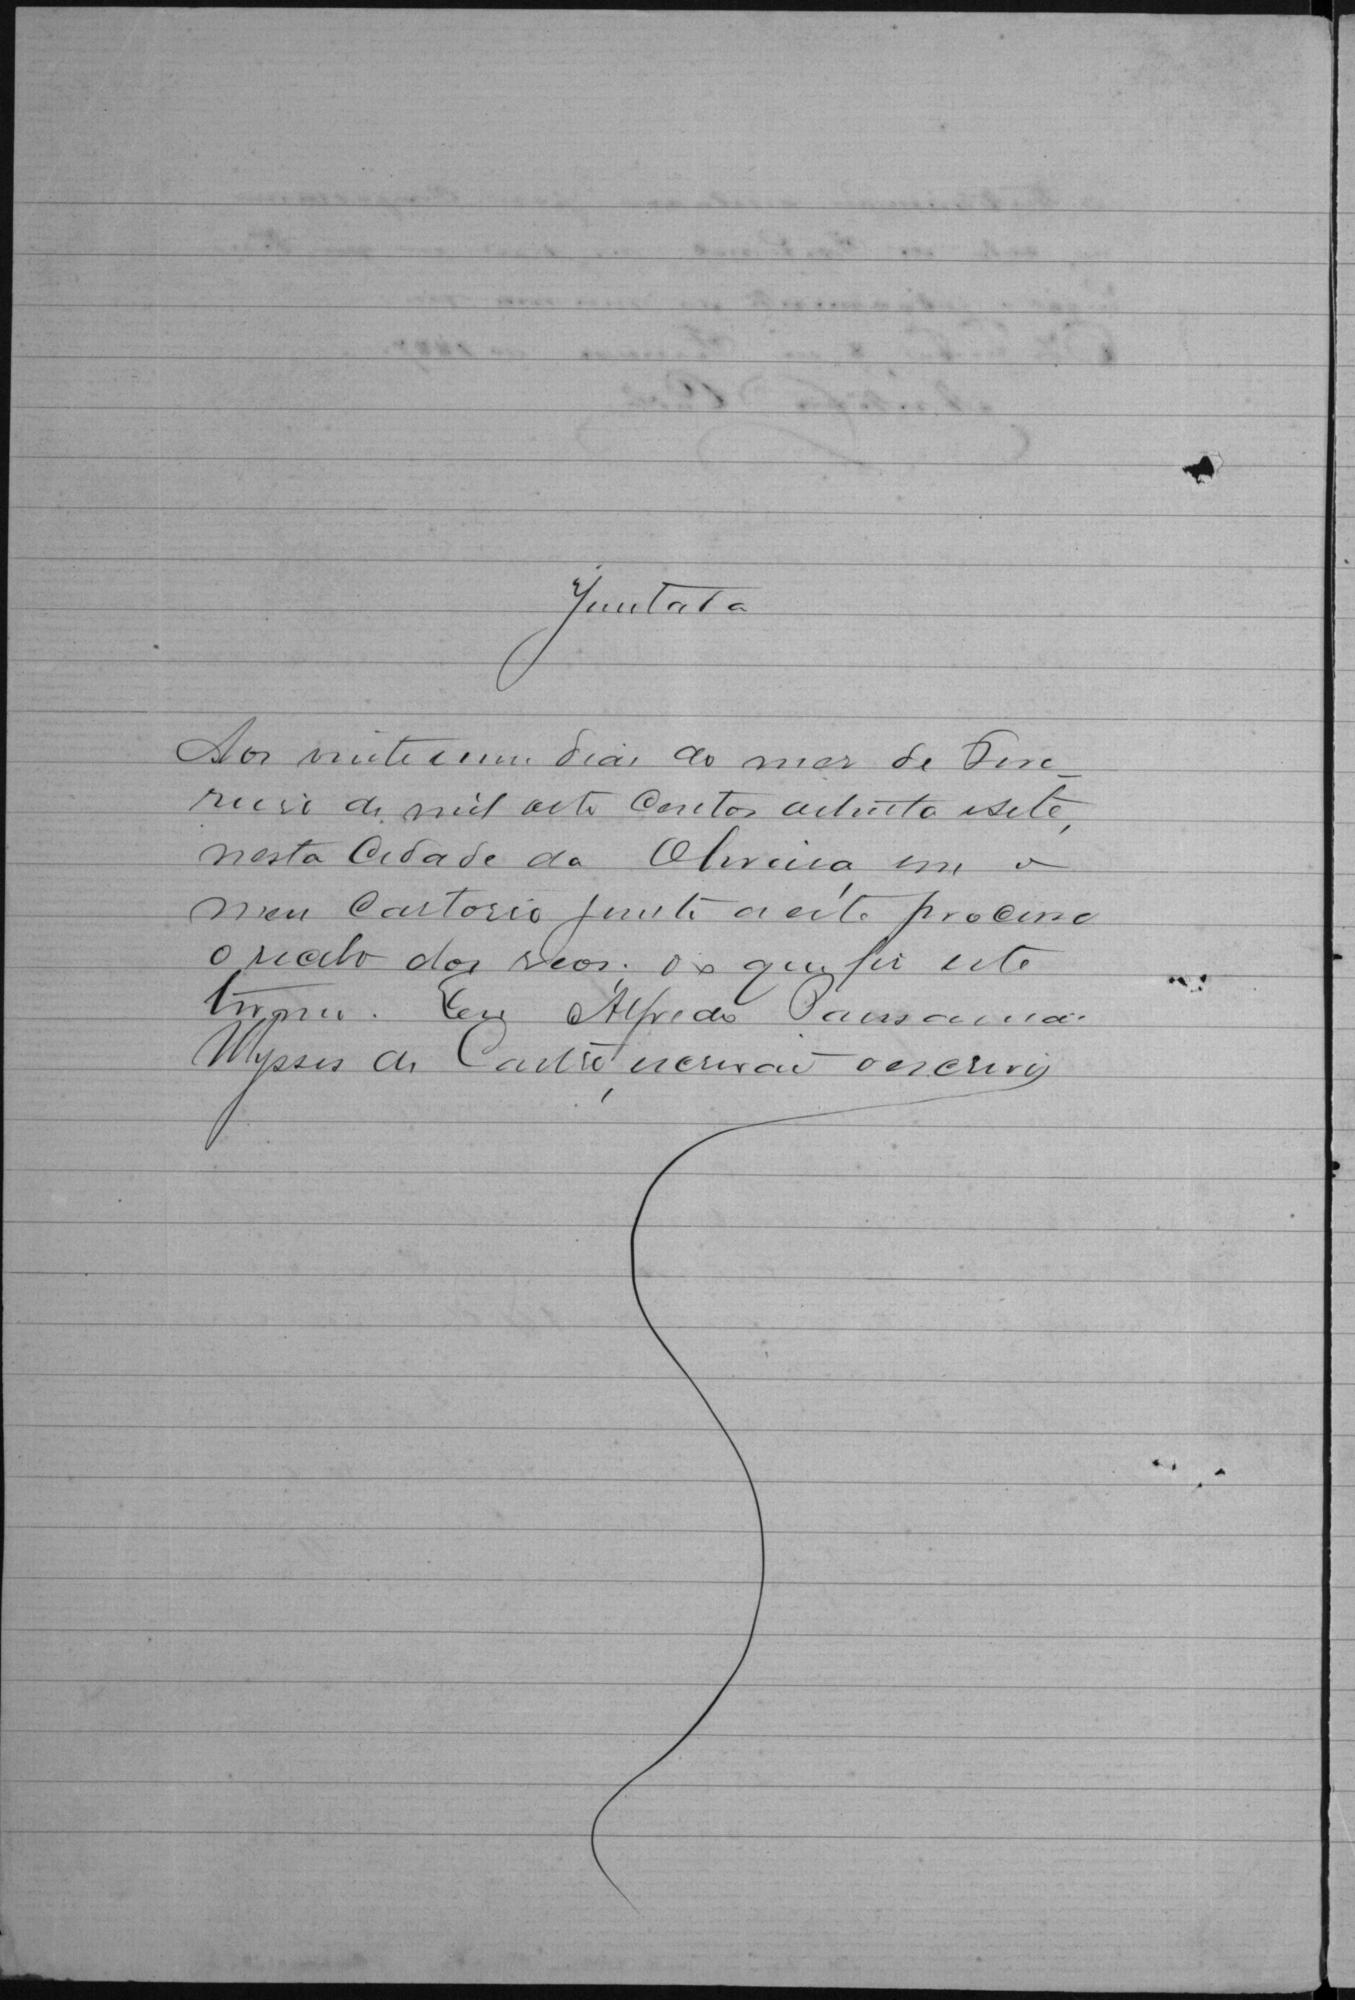 Juntada
Aos vinte e um dias do mez de Feve-
reiro de mil oito centos oitenta e sete,
nesta Cidade da Oliveira, em o
meu Cartorio junto a este processo
o recibo dos reos; do que fiz este
termo. Eu Alfredo
Ulysses de Castro, escrivaõ o escrevi